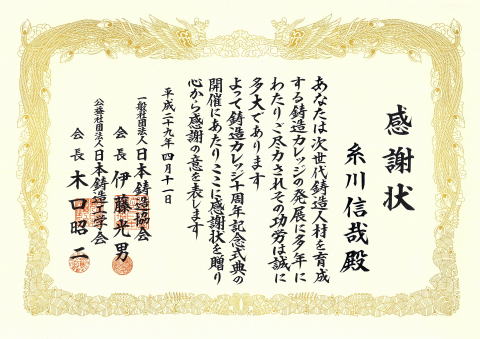 感謝状
糸川信哉殿
あなたは次世代鋳造人材を育成
する鋳造カレッジの発展に多年に
わたりご尽力されその功労は誠に
多大であります
よって鋳造カレッジ十周年記念式典の
開催にあたりここに感謝状を贈り
心から感謝の意を表します
平成二十九年四月十一日
一般社団法人日本鋳造協会
会長伊藤光男
公益社団法人日本鋳造工学会
会長木口昭二